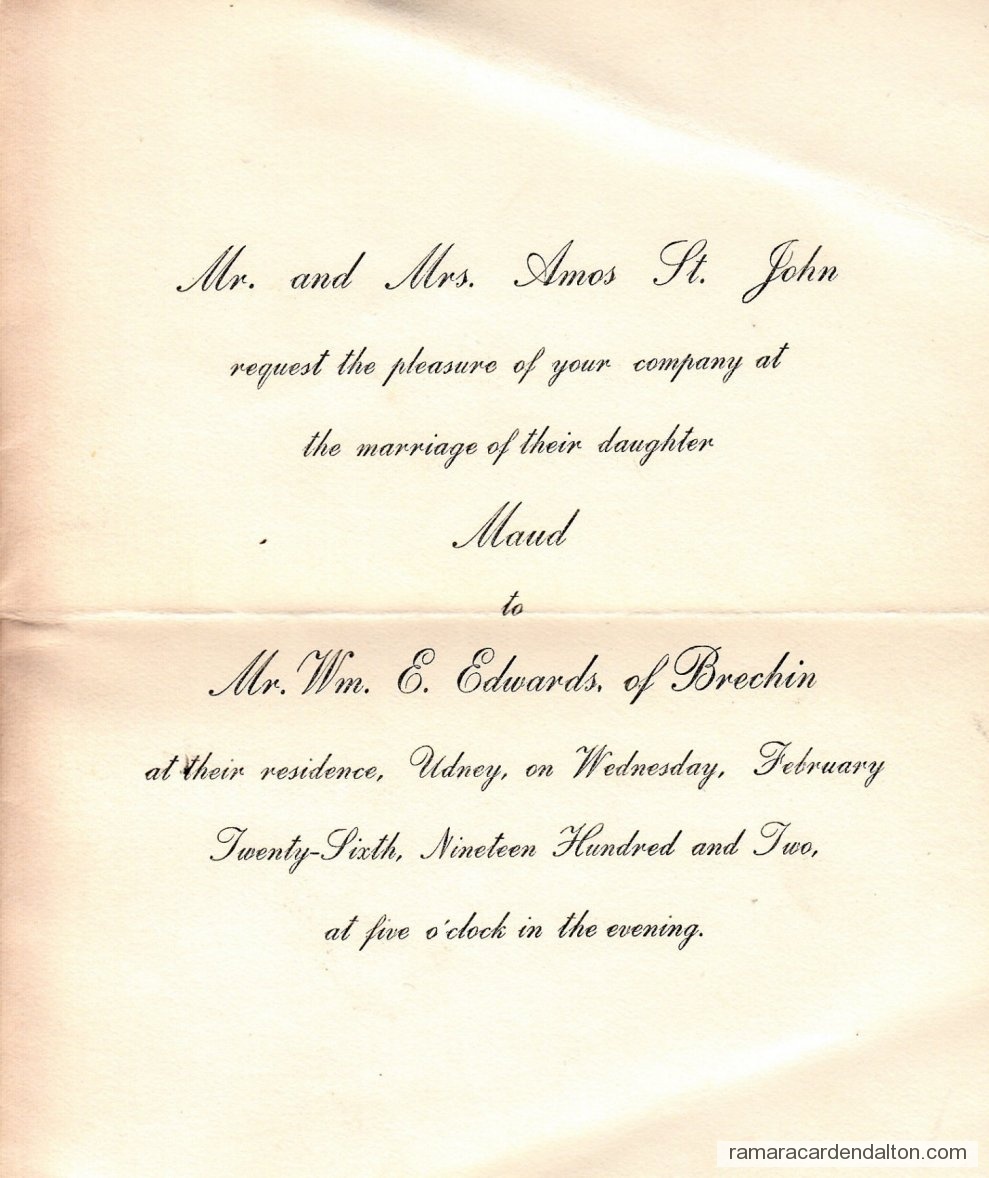 Mr. and Mrs. Amos St. John
request the pleasure of your company at
the marriage of their daughter
Maud
to
Mr. Wm. E. Edwards, of Brechin
at their residence, Udney, on Wednesday, February
Twenty-Sixth, Nineteen Hundred and Two,
at five o'clock in the evening.
ramaracardendalton.com